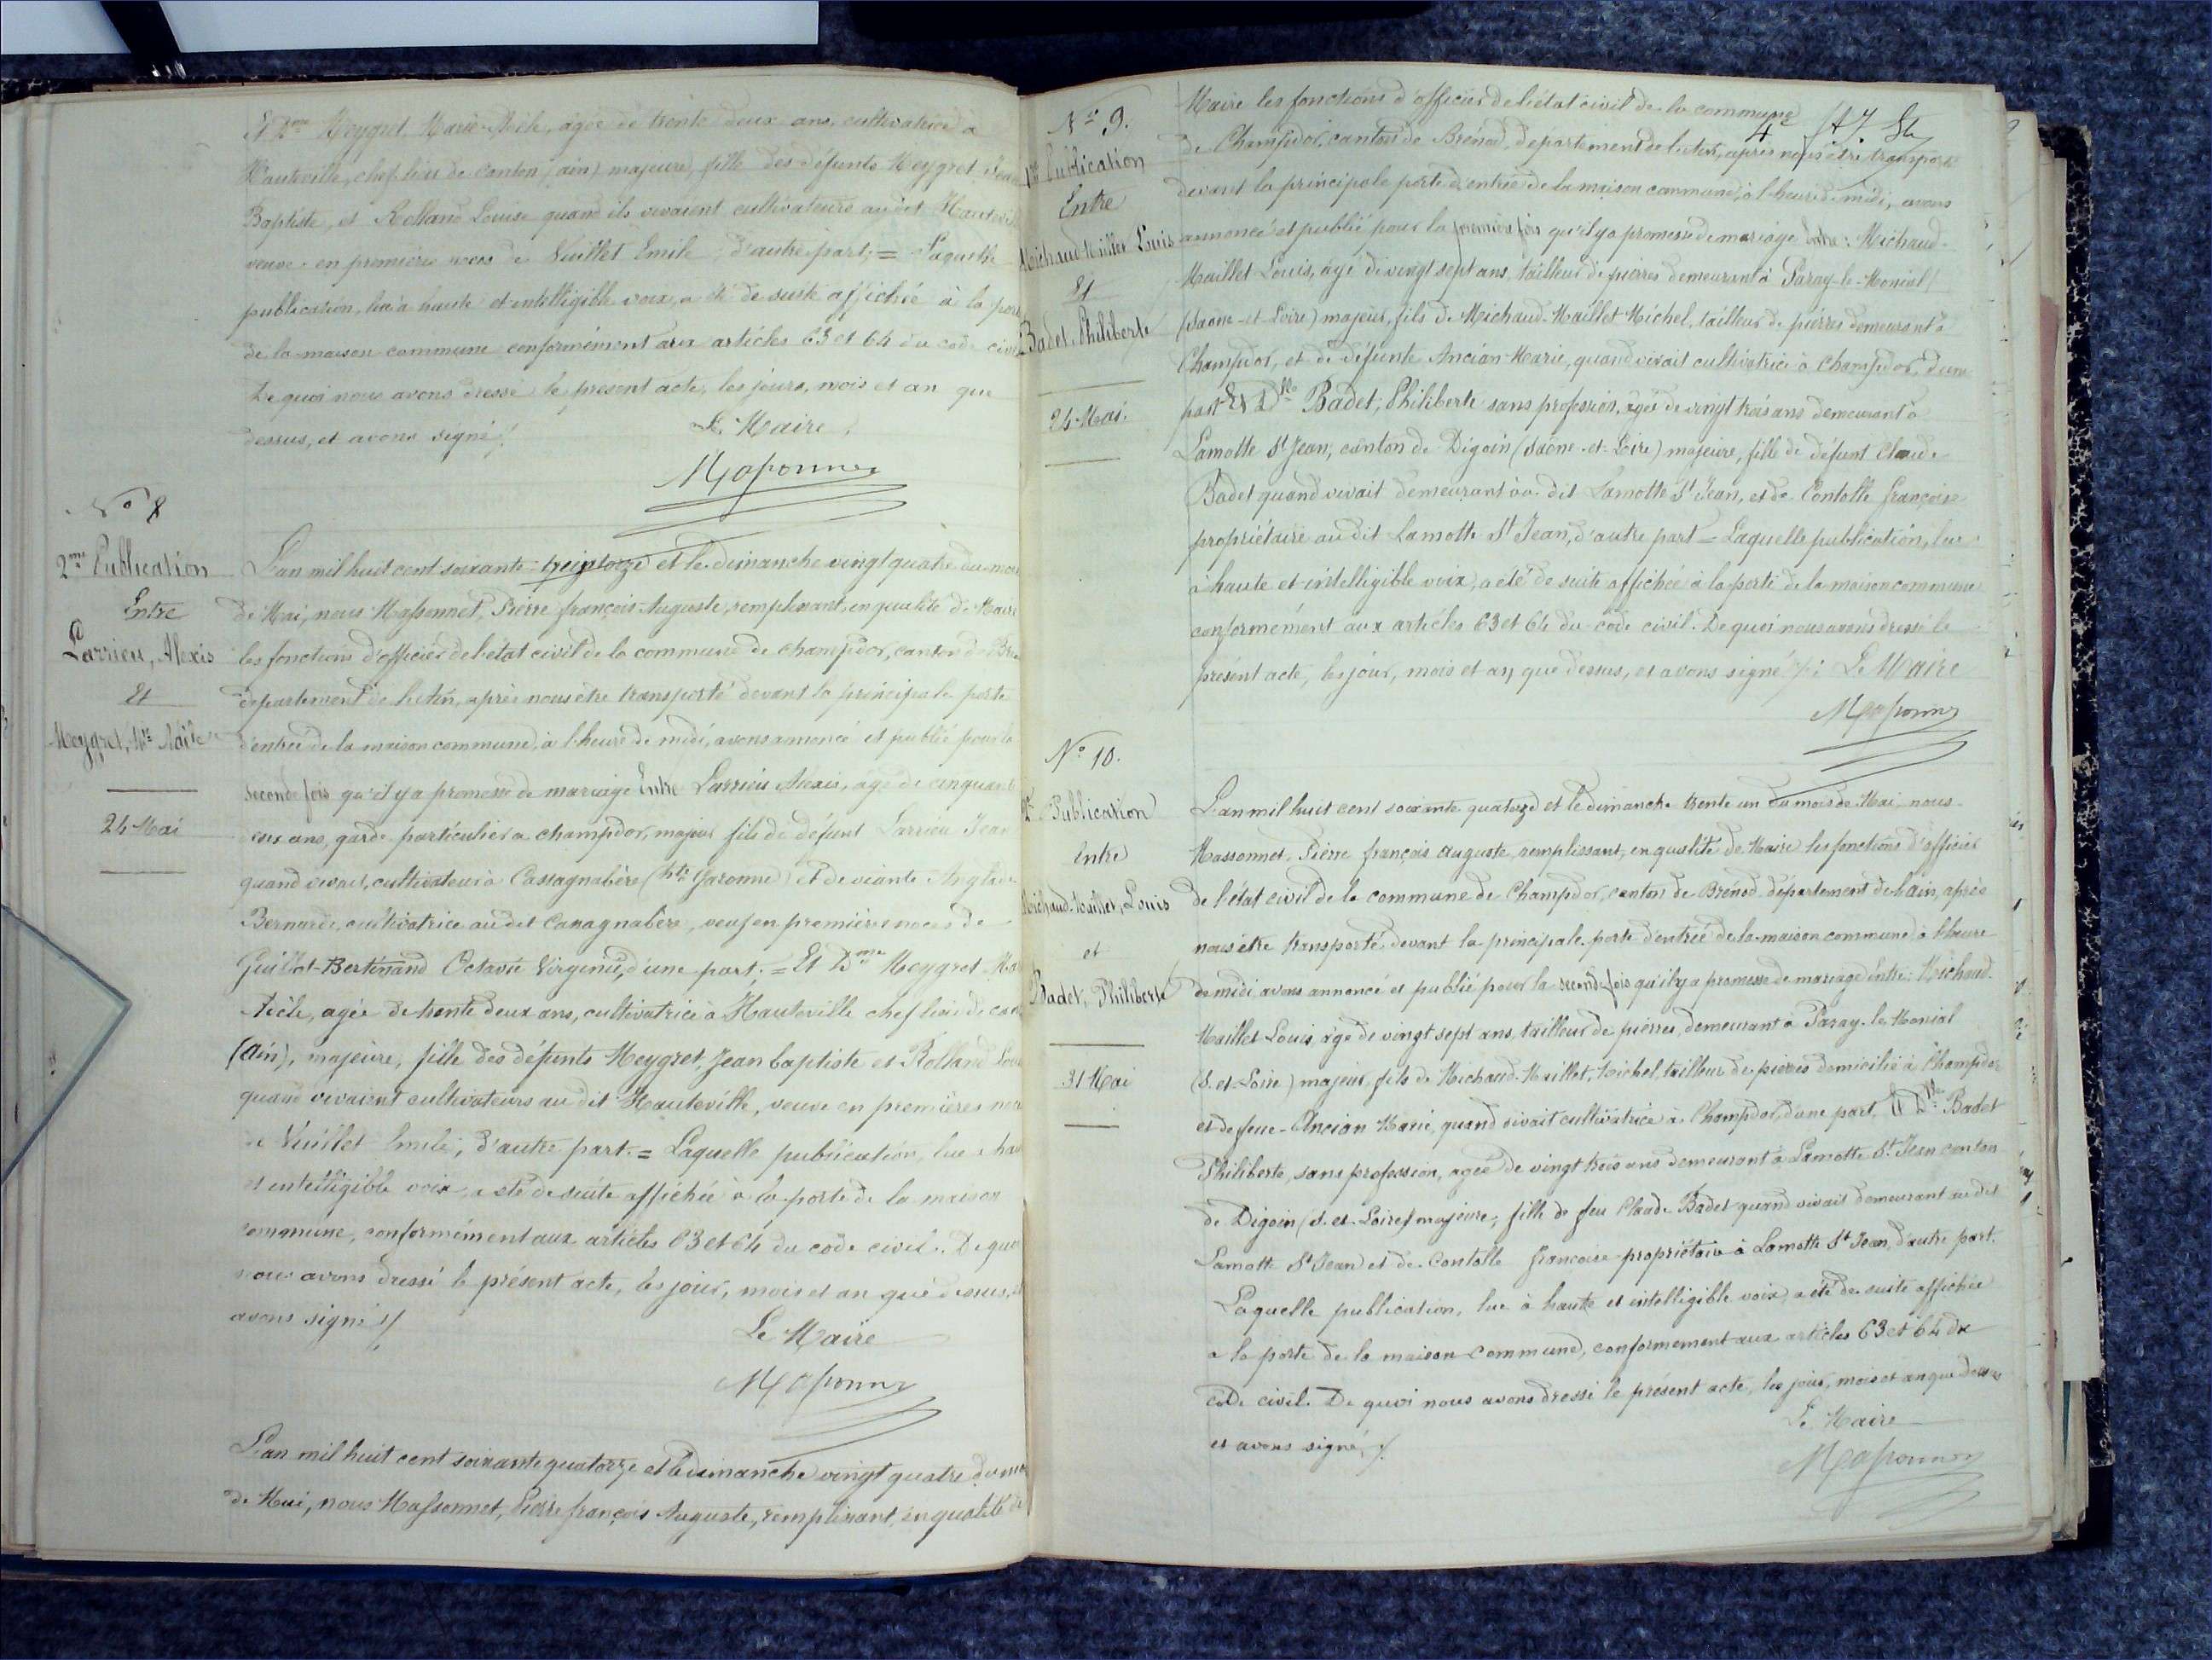 Et Dme Meygret Marie Adèle, âgée de trente deux ans, cultivatrice à
Hauteville, chef lieu de canton (ain) majeure, fille des défunts Meygret Jean
Baptiste, et Rolland Louise quand ils vivaient cultivateurs au dit Hauteville
veuve en premières noces de Vuillet Emile, d'autre part; = Laquelle
publication, lue à haute et intelligible voix, a été de suite affichée à la porte
de la maison commune conformément aux articles 63 et 64 du code civil
De quoi nous avons dressé le présent acte, les jours, mois et an que
dessus, et avons signé ./.
Le Maire
Massonnet
No 8
2me Publication
Entre
Larrieu, Alexis
Et
Meygret, Mie Adèle
24 Mai
L'an mil huit cent soixante et le dimanche vingt quatre du mois
de Mai, nous Massonnet, Pierre françois Auguste, remplissant, en qualité de Maire
les fonctions d'officier de l'état civil de la commune de champdor, canton de Bré
département de l'Ain, après nous être transporté devant la principale porte
d'entrée de la maison commune, à l'heure de midi, avons annoncé et publié pour la
seconde fois qu'il y a promesse de mariage Entre Larrieu Alexis, âgé de cinquante
deux ans, garde particulier à champdor, majeur fils de défunt Larrieu Jean
quand vivait, cultivateur à Cassagnabère (hte Garonne) et de vivante
Bernarde, cultivatrice au dit Cassagnabère, veuf en premières noces de
Guillot-Bertinand Octavie Virginie, d'une part; = Et Dme Meygret Ma
Adèle, agée de trente deux ans, cultivatrice à Hauteville chef lieu de can
(Ain), majeure, fille des défunts Meygret, Jean baptiste et Rolland Loui
quand vivaient cultivateurs au dit Hauteville, veuve en premières noces
de Vuillet Emile, d'autre part. = Laquelle publication, lue à hau
et intelligible voix, a été de suite affichée à la porte de la maison
commune, conformément aux articles 63 et 64 du code civil. De quoi
nous avons dressé le présent acte, les jour, mois et an que dessus, et
avons signé ./.
Le Maire
Massonnet
L'an mil huit cent soixante quatorze et le dimanche vingt quatre du mois
de Mai, nous Massonnet, Pierre françois Auguste, remplissant, en qualité de
4e
No 9.
1ère Publication
Entre
Michaud-Maillet Louis
Et
Badet, Philiberte
24 Mai.
Maire les fonctions d'officier de l'état civil de la commune
de Champdor, canton de Brénod, département de l'ain, après nous être transporté
devant la principale porte d'entrée de la maison commune, à l'heure de midi, avons
annoncé et publié pour la première fois qu'il y a promesse de mariage Entre: Michaud-
Maillet Louis, âgé de vingt sept ans, tailleur de pierres demeurant à Paray-le-Monial
(Saône-et-Loire) majeur, fils de Michaud-Maillet Michel, tailleur de pierres demeurant à
Champdor, et de défunte Ancian Marie, quand vivait cultivatrice à Champdor, d'une
part Et Dlle Badet, Philiberte sans profession, âgée de vingt trois ans demeurant à
Lamotte St Jean, canton de Digoin (Saône-et-Loire) majeure, fille de défunt Claude
Badet quand vivait demeurant au dit Lamotte St Jean, et de Contolle françoise
propriétaire au dit Lamotte St Jean, d'autre part = Laquelle publication, lue
à haute et intelligible voix, a été de suite affichée à la porte de la maison commune
conformément aux articles 63 et 64 du code civil. De quoi nous avons dressé le
présent acte, les jour, mois et an que dessus, et avons signé ./. Le Maire
Massonnet
No 10.
2e Publication
Entre
Michaud-Maillet, Louis
et
Badet, Philiberte
31 Mai
L'an mil huit cent soixante quatorze et le dimanche trente un du mois de Mai, nous
Massonnet, Pierre françois auguste, remplissant, en qualité de Maire les fonctions d'officier
de l'état civil de la commune de Champdor, canton de Brénod département de l'ain, après
nous être transporté devant la principale porte d'entrée de la maison commune à l'heure
de midi avons annoncé et publié pour la seconde fois qu'il y a promesse de mariage entre: Michaud-
Maillet Louis, âgé de vingt sept ans, tailleur de pierres, demeurant à Paray-le-Monial
(S. et-Loire) majeur, fils de Michaud-Maillet, Michel, tailleur de pierres domicilié à Champdor
et de feue Ancian Marie, quand vivait cultivatrice à Champdor, d'une part, Et Dlle Badet
Philiberte, sans profession, agée de vingt trois ans demeurant à Lamotte St Jean canton
de Digoin (S. et-Loire) majeure, fille de feu Claude Badet quand vivait demeurant au dit
Lamotte St Jean et de Contolle françoise propriétaire à Lamotte St Jean, d'autre part.
Laquelle publication, lue à haute et intelligible voix, a été de suite affichée
à la porte de la maison commune, conformément aux articles 63 et 64 du
code civil. De quoi nous avons dressé le présent acte, les jour, mois et an que dessus
et avons signé, ./.
Le Maire
Massonnet